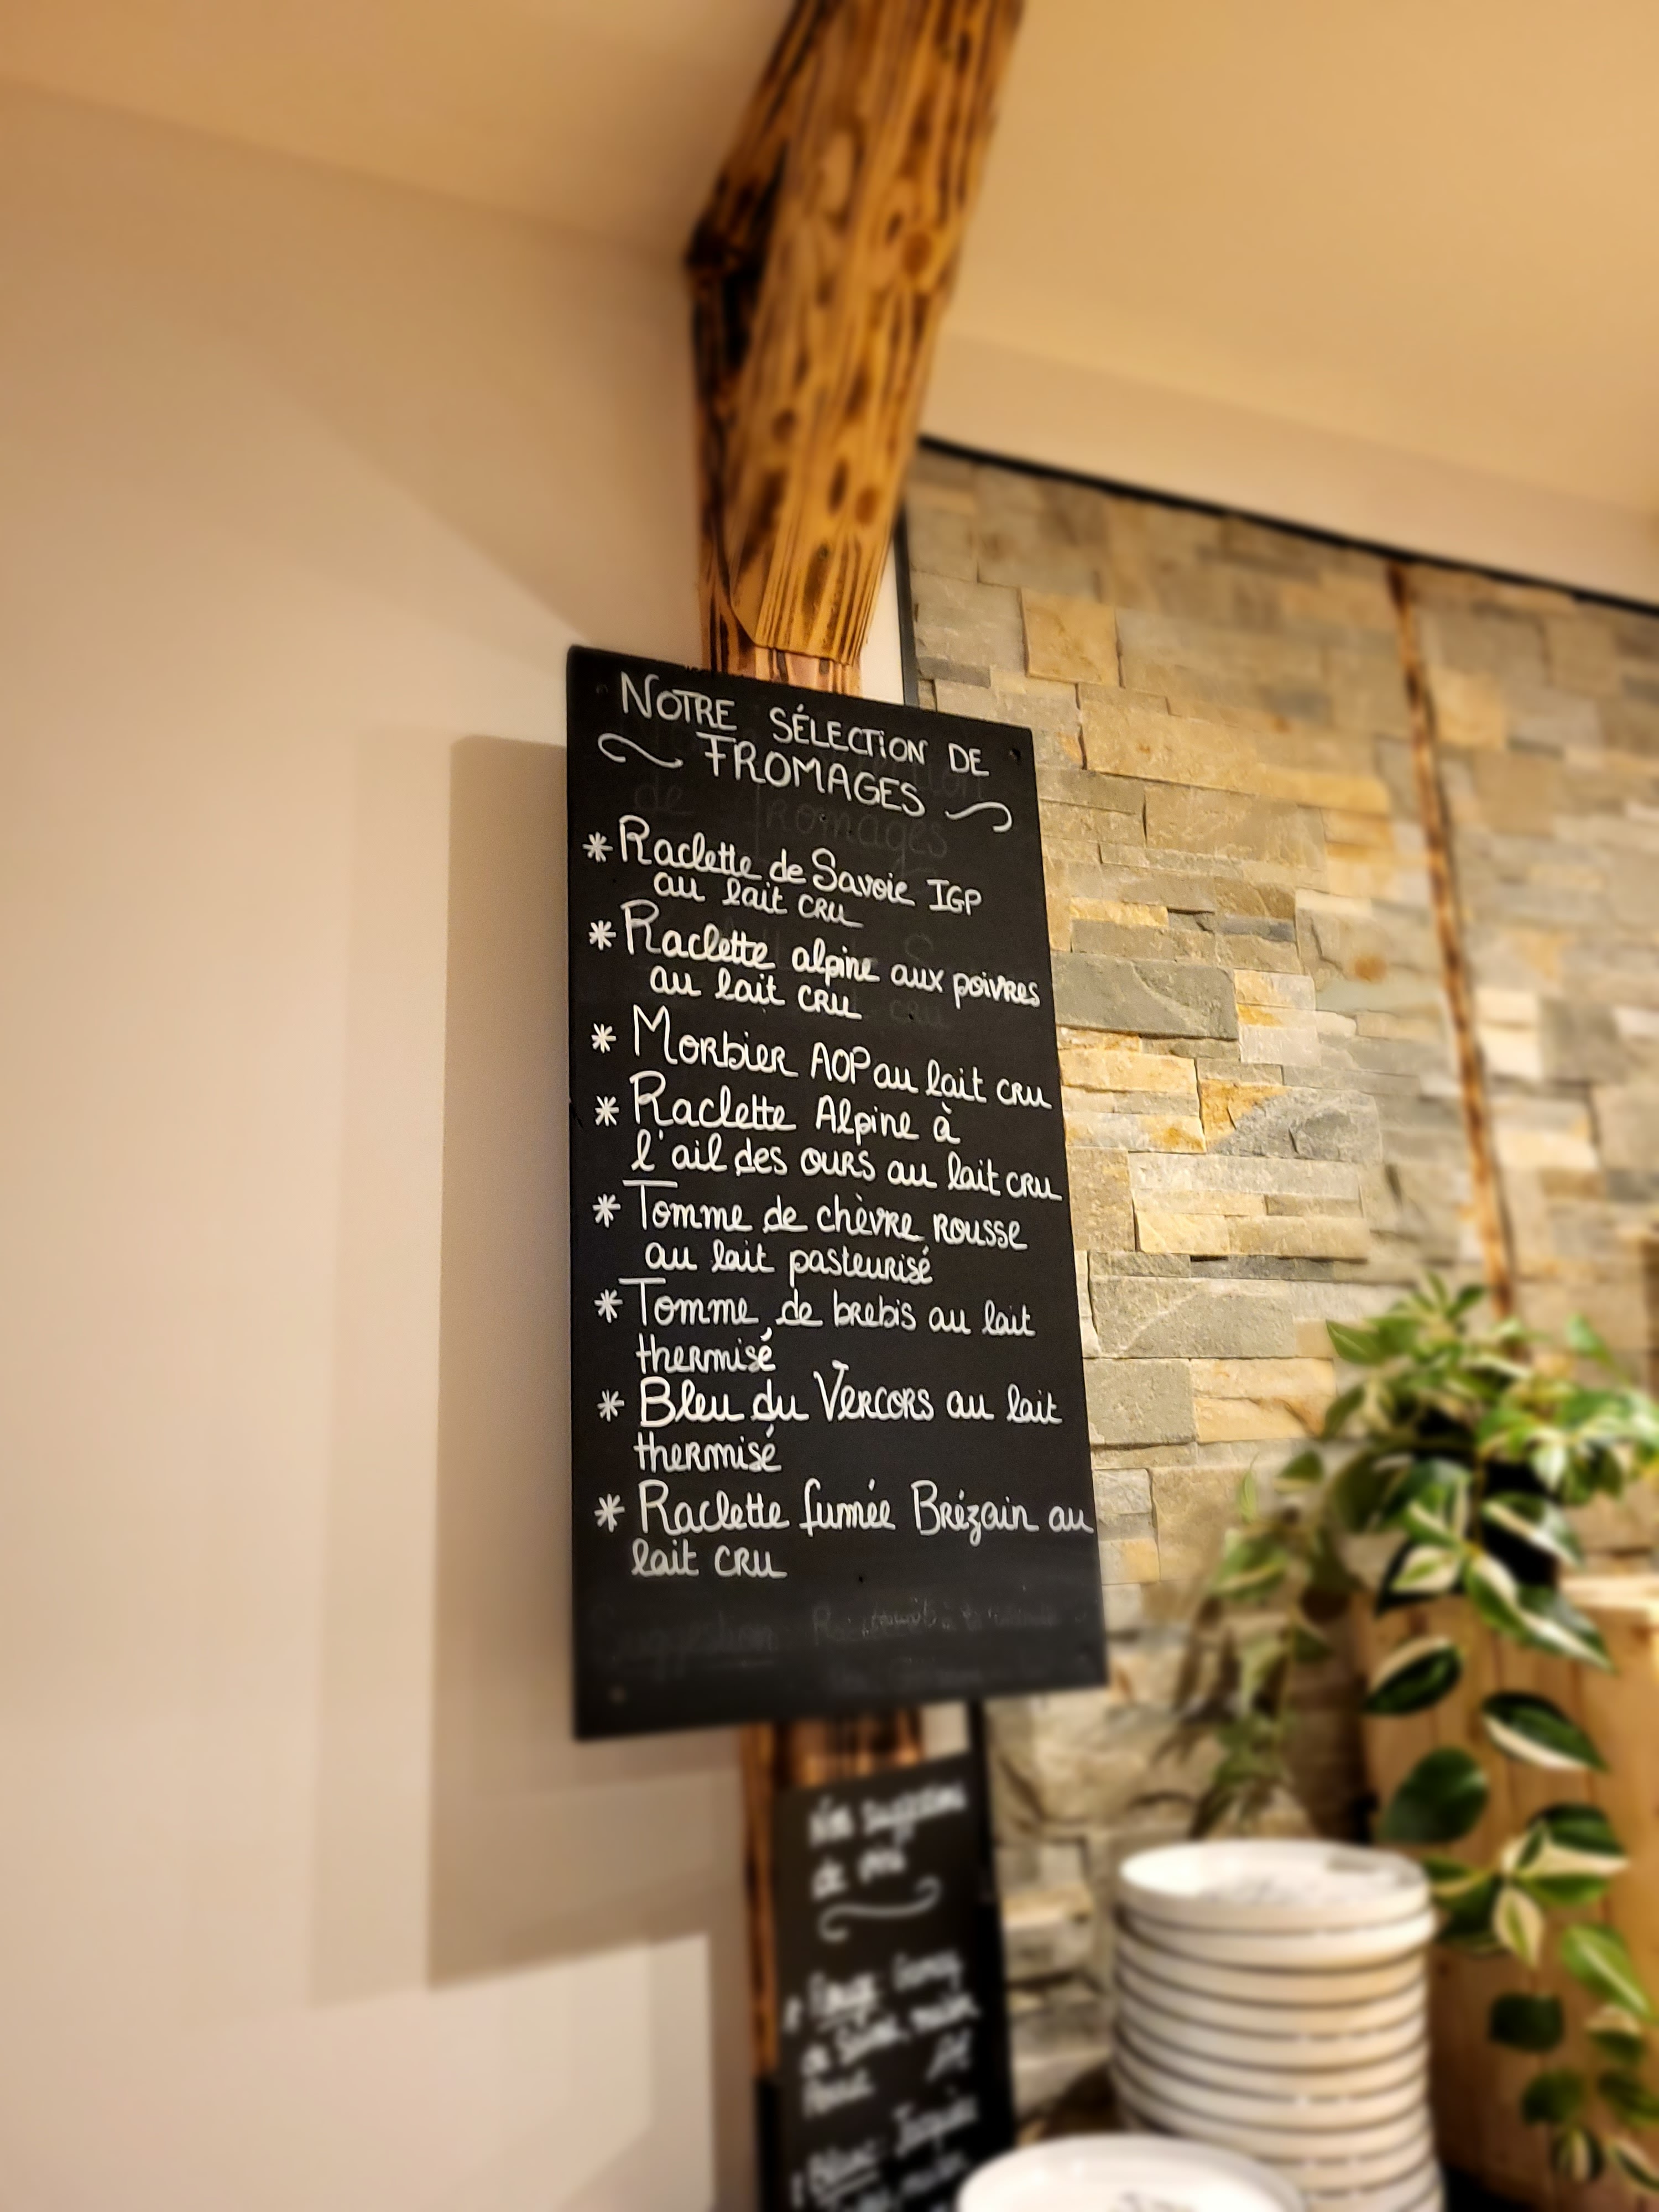 NOTRE SÉLECTION DE
FROMAGES
* Raclette de Savoie IGP
au lait cru
* Raclette alpine aux poivres
au lait cru
* Morbier AOP au lait cru
* Raclette Alpine à
l'ail des ours au lait cru
* Tomme de chèvre rousse
au lait pasteurisé
* Tomme de brebis au lait
thermisé
* Bleu du Vercors au lait
thermisé
* Raclette fumée Brézain au
lait cru